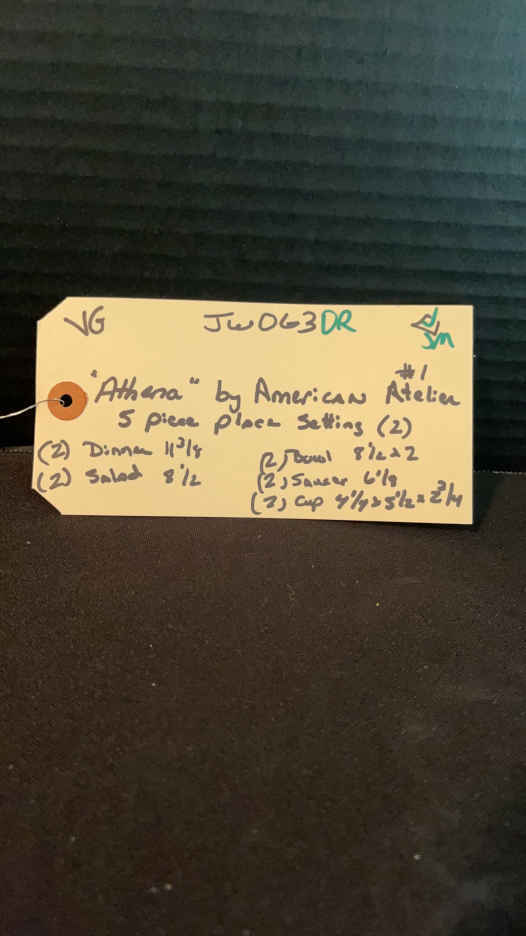 VG JW063DR
#1
"Athena" by American Atelier
5 piece place setting (2)
(2) Dinner 11 3/8
(2) Salad 8 1/2
(2) Bowl 8 1/2 x 2
(2) Saucer 6 1/8
(2) Cup 4 1/4 x 5 1/2 x 2 3/4